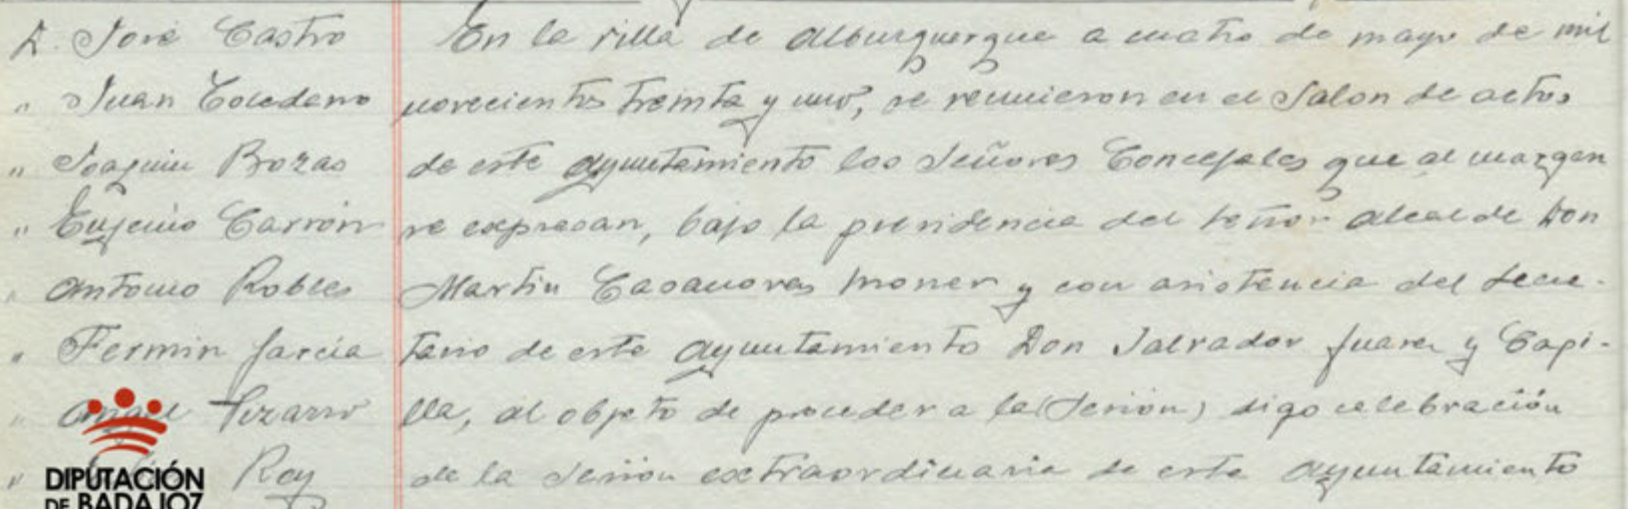 D. José Castro
" Juan Toledano
" Joaquin Bozas
" Eugenio Carrón
" Antonio Robles
" Fermin Garcia
" Angel Pizarro
" Rey
En la villa de Alburquerque a cuatro de mayo de mil
novecientos treinta y uno, se reunieron en el Salon de actos
de este Ayuntamiento los Señores Concejales que al margen
se expresan, bajo la presidencia del señor Alcalde Don
Martin Casanovas Moner y con asistencia del Secre-
tario de este Ayuntamiento Don Salvador Juarez y Capi-
lla, al objeto de proceder a la (Sesion) digo celebración
de la Sesión extraordinaria de este Ayuntamiento
DIPUTACIÓN
DE BADAJOZ